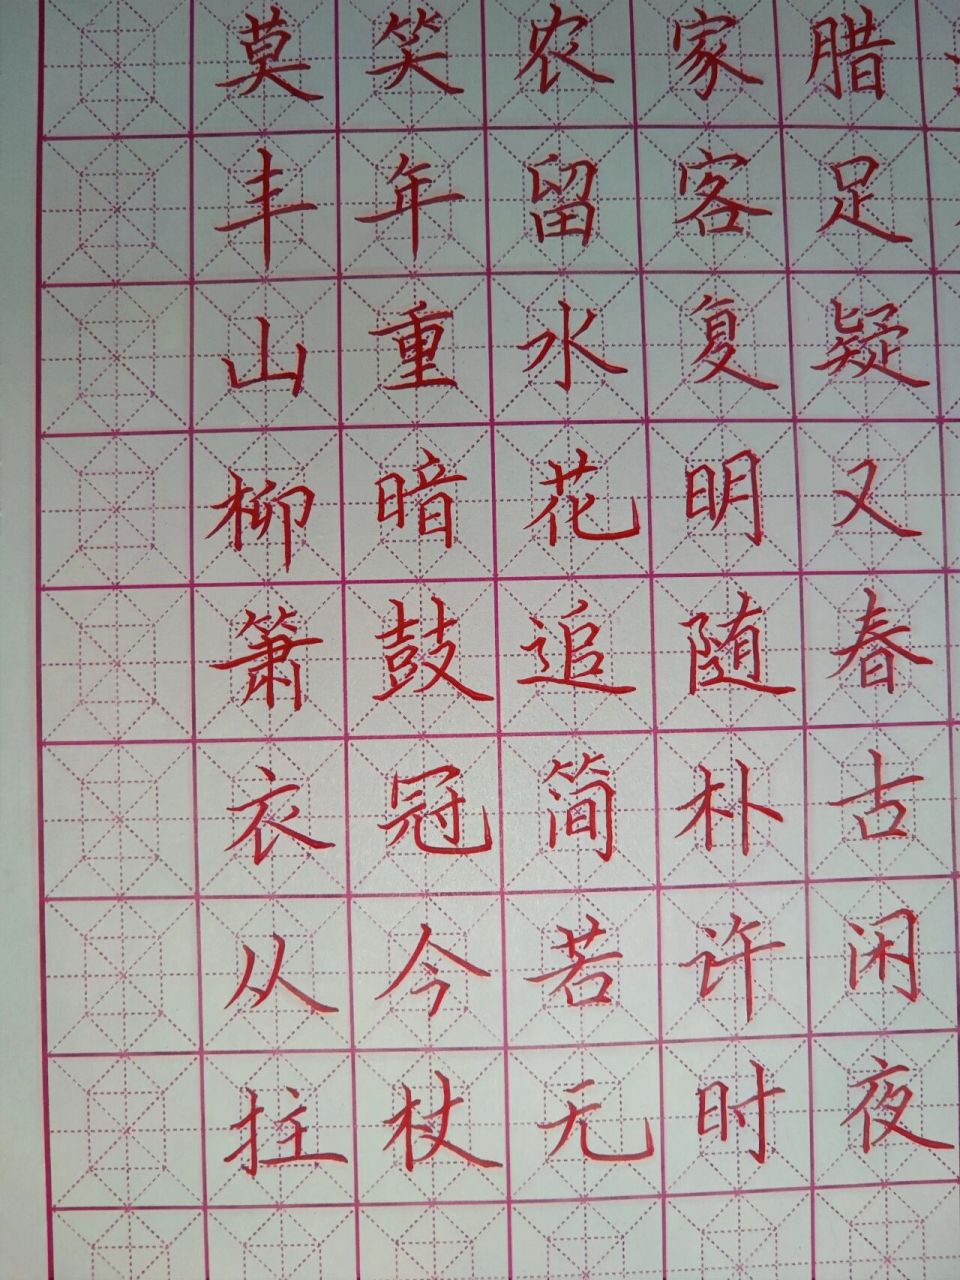 莫笑农家腊
丰年留客足
山重水复疑
柳暗花明又
箫鼓追随春
衣冠简朴古
从今若许闲
拄杖无时夜